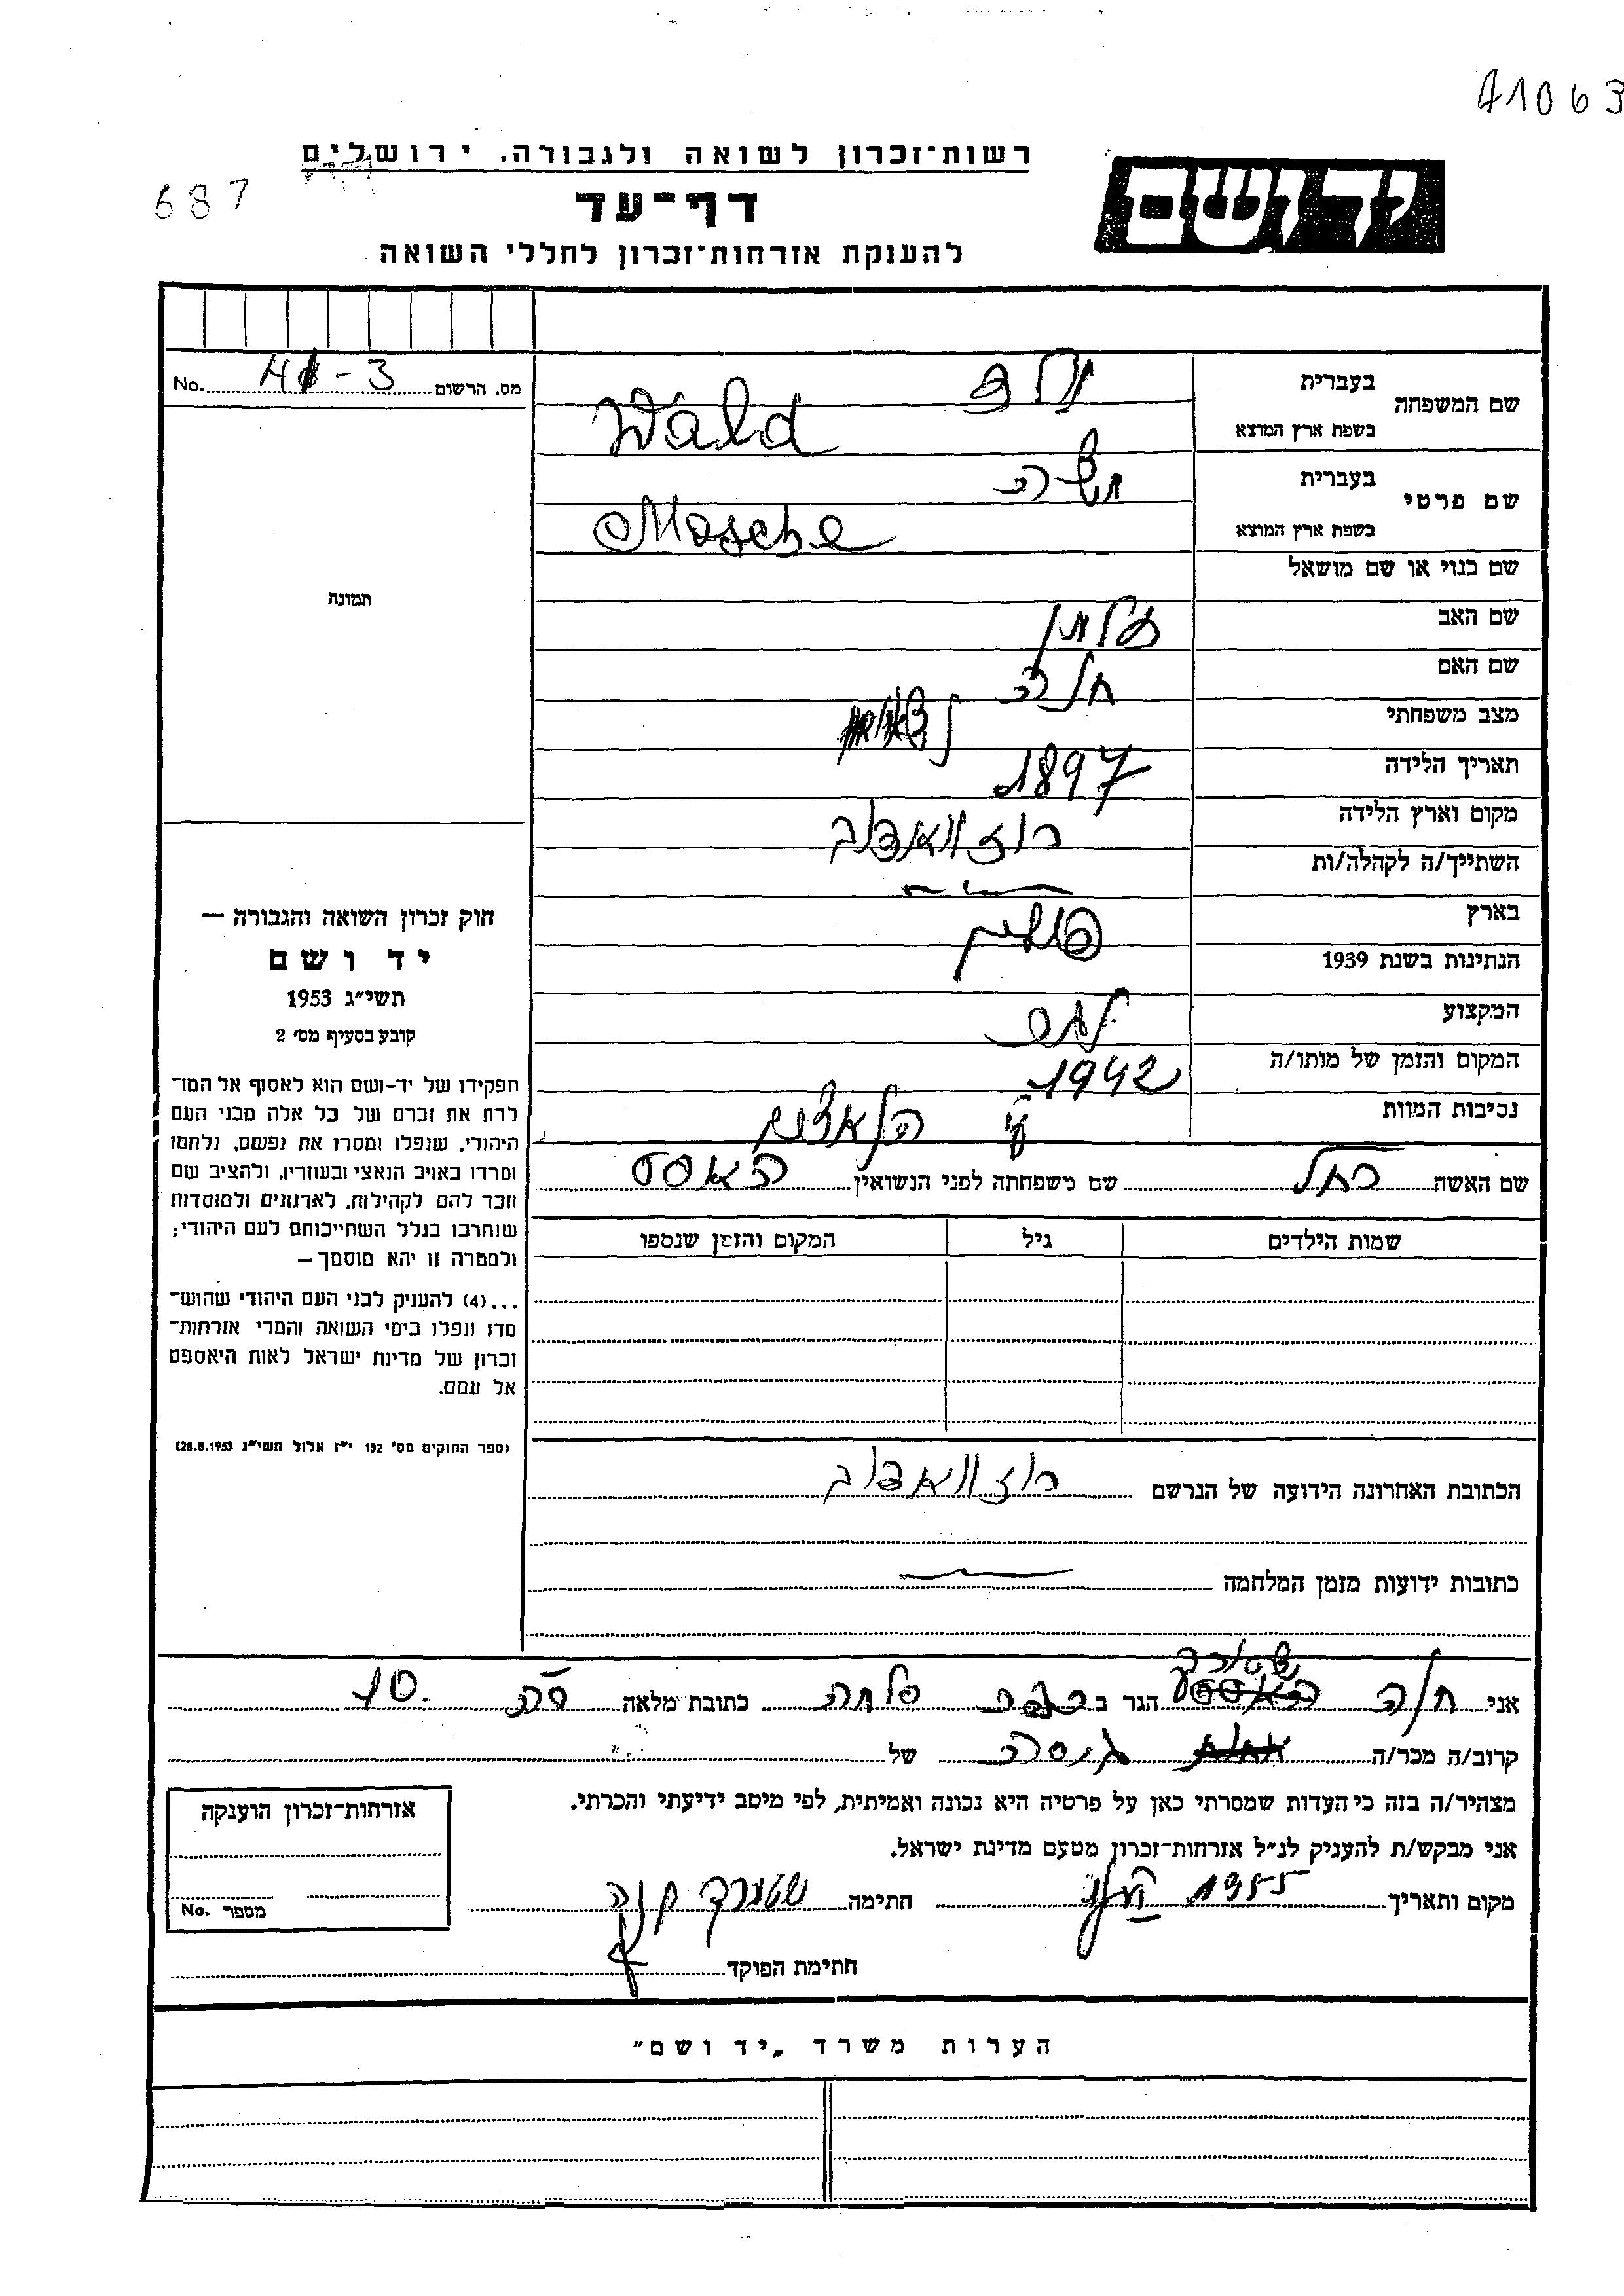 41063
רשות־זכרון לשואה ולגבורה, ירושלים
687
דף־עד
יד ושם
להענקת אזרחות־זכרון לחללי השואה
מס. הרשום No. 41-3
שם המשפחה
בעברית ולד
בשפת ארץ המוצא Wald
שם פרטי
בעברית משה
בשפת ארץ המוצא Mosche
שם כנוי או שם מושאל
שם האב
שם האם חנה
מצב משפחתי נשוי
תאריך הלידה 1897
מקום וארץ הלידה רוזוואדוב
השתייך/ה לקהלה/ות
בארץ פולין
הנתינות בשנת 1939
המקצוע
המקום והזמן של מותו/ה 1942
נסיבות המוות ע"י הנאצים
תמונה
חוק זכרון השואה והגבורה —
יד ושם
תשי"ג 1953
קובע בסעיף מס׳ 2
תפקידו של יד-ושם הוא לאסוף אל המו־
לדת את זכרם של כל אלה מבני העם
היהודי, שנפלו ומסרו את נפשם, נלחמו
ומרדו באויב הנאצי ובעוזריו, ולהציב שם
וזכר להם לקהילות, לארגונים ולמוסדות
שנחרבו בגלל השתייכותם לעם היהודי;
ולמטרה זו יהא מוסמך —
...(4) להעניק לבני העם היהודי שהוש־
מדו ונפלו בימי השואה והמרי אזרחות־
זכרון של מדינת ישראל לאות היאספם
אל עמם.
(ספר החוקים מס׳ 132 י"ז אלול תשי"ג 28.8.1953)
שם האשה רחל שם משפחתה לפני הנשואין האסט
שמות הילדים גיל המקום והזמן שנספו
הכתובת האחרונה הידועה של הנרשם רוזוואדוב
כתובות ידועות מזמן המלחמה
אני חנה הגר ב כתובת מלאה 10
קרוב/ה מכר/ה גיסה של
מצהיר/ה בזה כי העדות שמסרתי כאן על פרטיה היא נכונה ואמיתית, לפי מיטב ידיעתי והכרתי.
אני מבקש/ת להעניק לנ"ל אזרחות־זכרון מטעם מדינת ישראל.
מקום ותאריך 1955 חתימה חנה
חתימת הפוקד
אזרחות־זכרון הוענקה
מספר No.
הערות משרד „יד ושם"